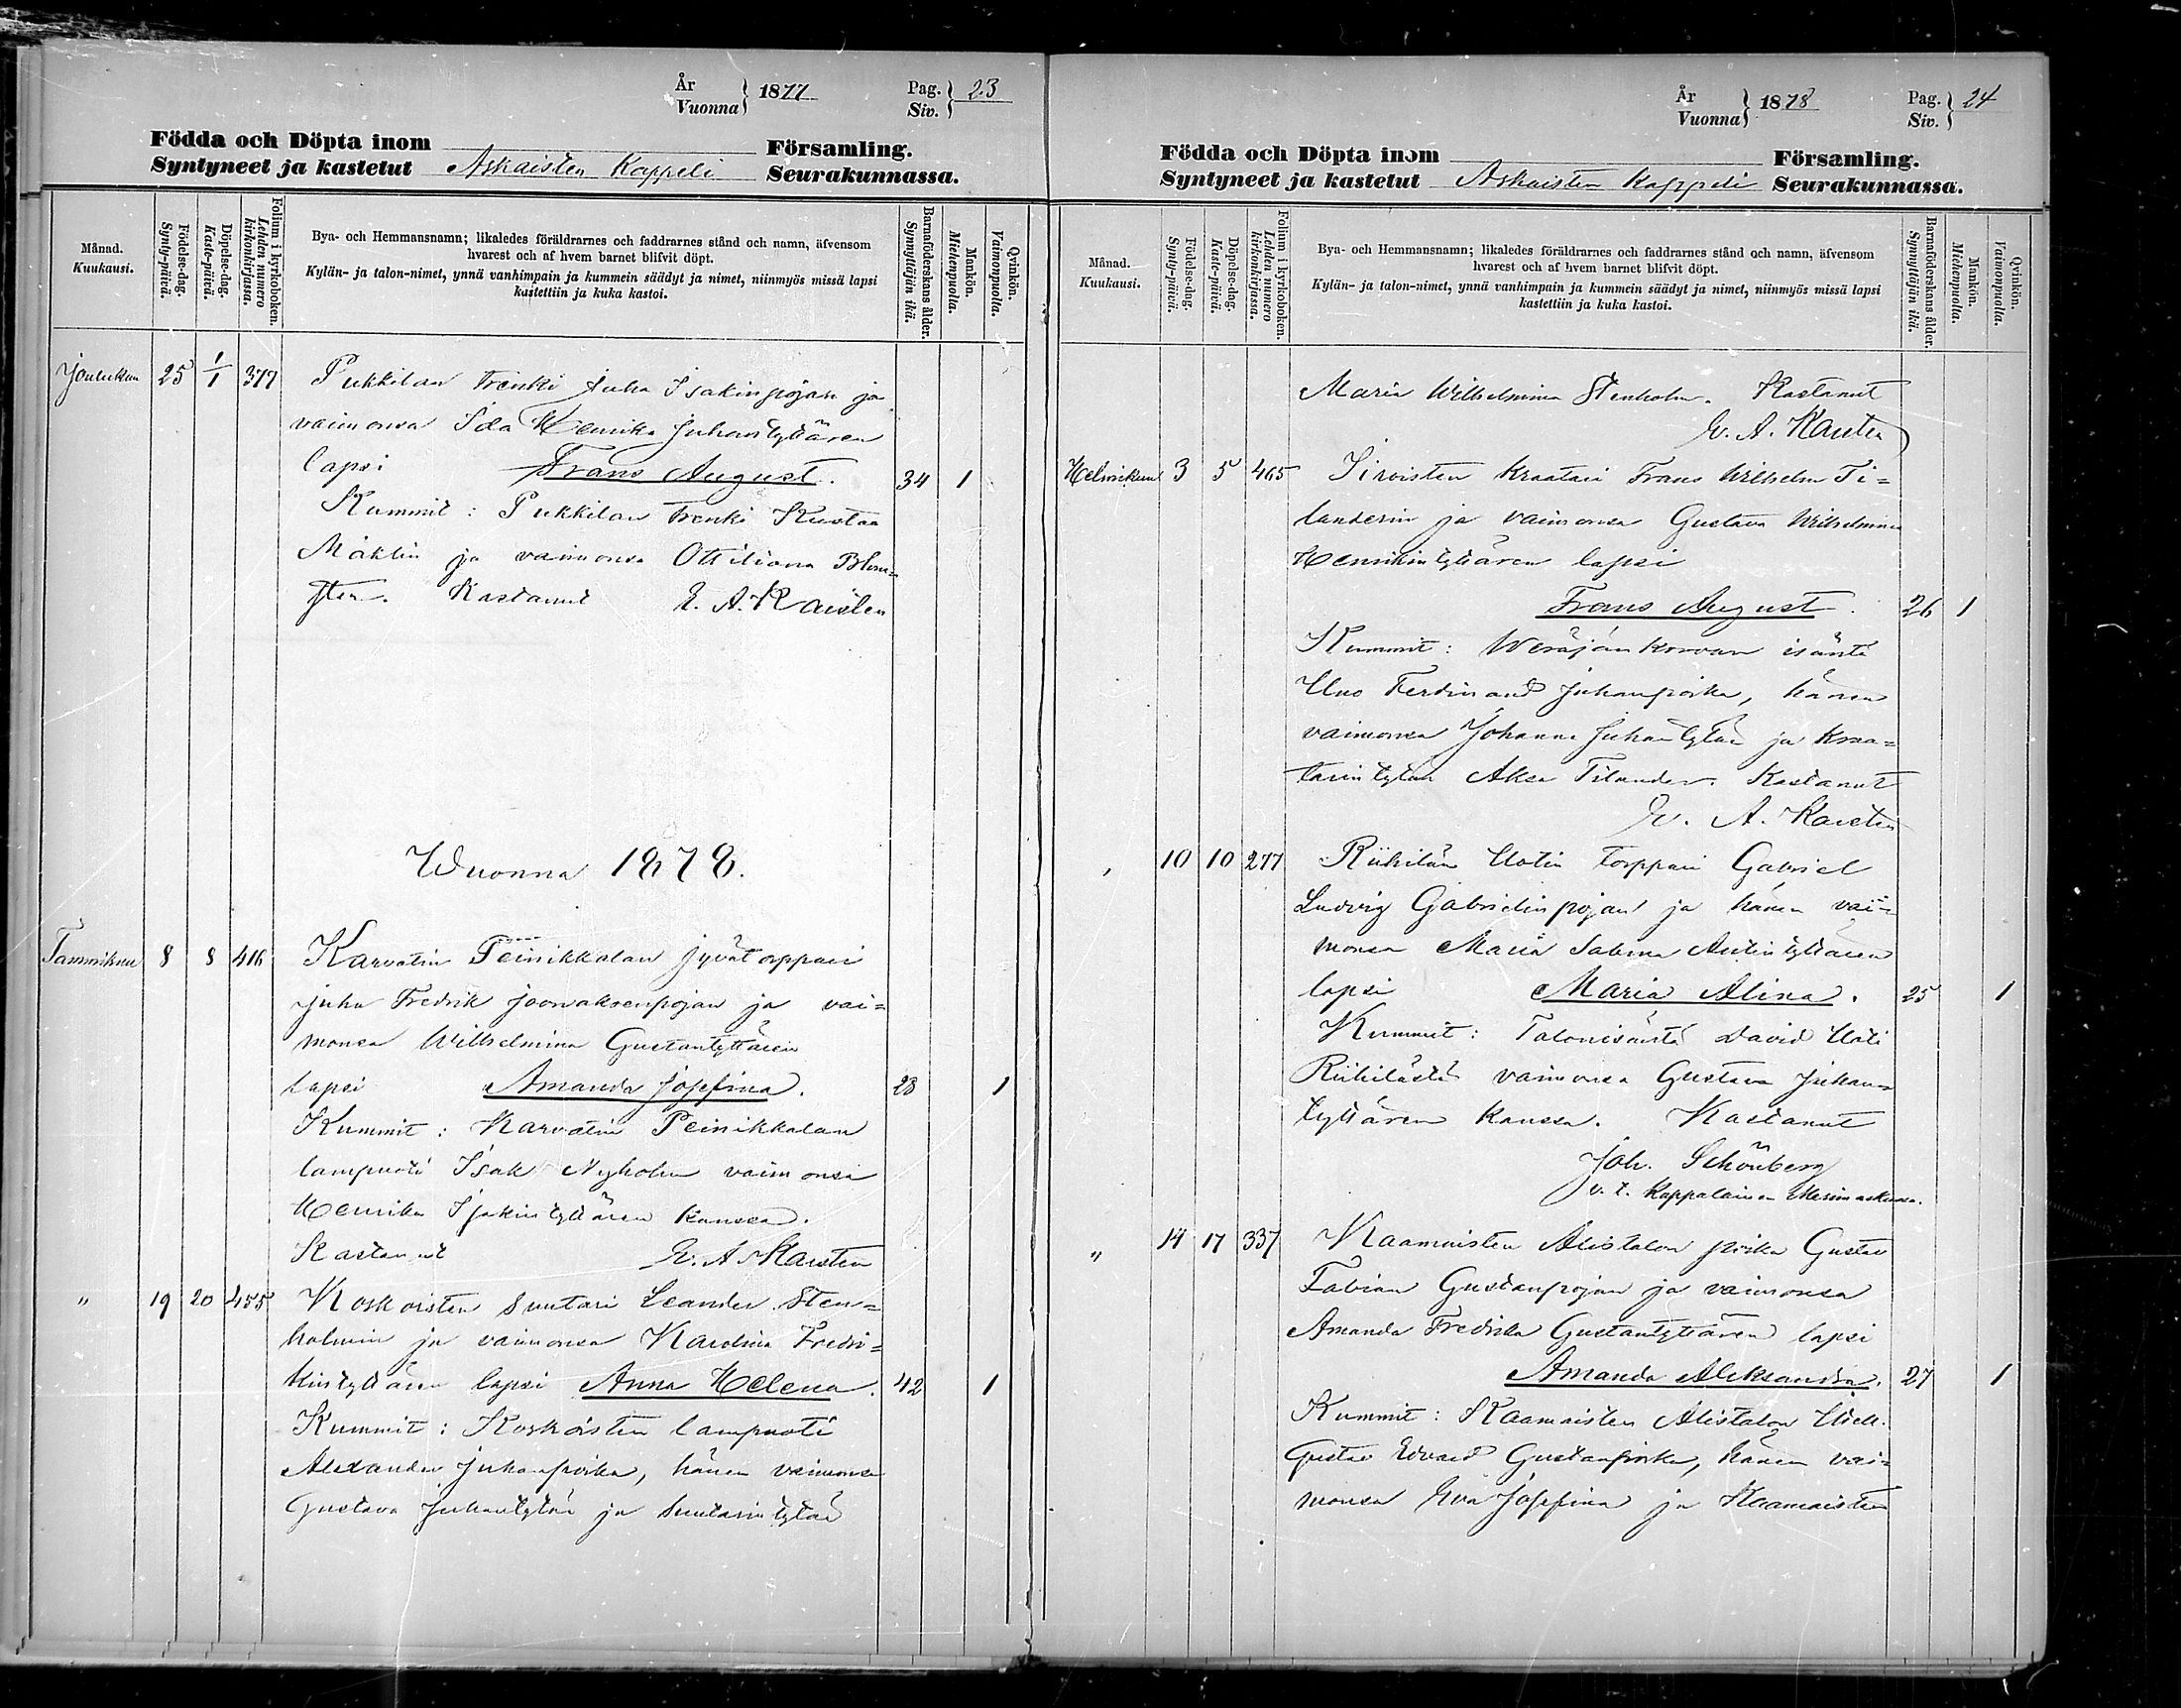 År
Vuonna } 1877 Pag.
Siv. } 23
Födda och Döpta inom Församling.
Syntyneet ja kastetut Askaisten Kappeli Seurakunnassa.
Månad.
Kuukausi.
Födelse-dag.
Synty-päivä.
Döpelse-dag.
Kaste-päivä.
Folium i kyrkoboken.
Lehden numero
kirkonkirjassa.
Bya- och Hemmansnamn; likaledes föräldrarnes och faddrarnes stånd och namn, äfvensom
hvarest och af hvem barnet blifvit döpt.
Kylän- ja talon-nimet, ynnä vanhimpain ja kummein säädyt ja nimet, niinmyös missä lapsi
kastettiin ja kuka kastoi.
Barnaföderskans ålder.
Synnyttäjän ikä.
Mankön.
Miehenpuolta.
Qvinkön.
Vaimonpuolta.
Joulukuu 25 1/1 377 Pukkilan trenki Juha Isakinpojan ja
vaimonsa Ida Henrika Juhantyttären
lapsi Frans August. 34 1
Kummit: Pukkilan trenki Kustaa
Mäklin ja vaimonsa Ottiliana Blom=
sten. Kastanut E. A. Karsten
Wuonna 1878.
Tammikuu 8 8 416 Karvatin Peinikkalan jyvätorppari
Juha Fredrik Joonaksenpojan ja vai=
monsa Wilhelmina Gustantyttären
lapsi Amanda Josefina. 28 1
Kummit: Karvatin Peinikkalan
lampuoti Isak Nyholm vaimonsa
Henrika Isakintyttären kanssa.
Kastanut E. A. Karsten
" 19 20 455 Koskoisten Suutari Leander Sten=
holmin ja vaimonsa Karolina Fredri=
kintyttären lapsi Anna Helena. 42 1
Kummit: Koskoisten lampuoti
Alexander Juhanpoika, hänen vaimonsa
Gustava Juhantytär ja Suutarintytär
År
Vuonna } 1878 Pag.
Siv. } 24
Födda och Döpta inom Församling.
Syntyneet ja kastetut Askaisten Kappeli Seurakunnassa.
Månad.
Kuukausi.
Födelse-dag.
Synty-päivä.
Döpelse-dag.
Kaste-päivä.
Folium i kyrkoboken.
Lehden numero
kirkonkirjassa.
Bya- och Hemmansnamn; likaledes föräldrarnes och faddrarnes stånd och namn, äfvensom
hvarest och af hvem barnet blifvit döpt.
Kylän- ja talon-nimet, ynnä vanhimpain ja kummein säädyt ja nimet, niinmyös missä lapsi
kastettiin ja kuka kastoi.
Barnaföderskans ålder.
Synnyttäjän ikä.
Mankön.
Miehenpuolta.
Qvinkön.
Vaimonpuolta.
Maria Wilhelmina Stenholm. Kastanut
E. A. Karsten
Helmikuu 3 5 465 Sirvisten Kraatari Frans Wilhelm Ti=
landerin ja vaimonsa Gustava Wilhelmina
Henrikintyttären lapsi
Frans August. 26 1
Kummit: Weräjänkorvan isäntä
Uno Ferdinand Juhanpoika, hänen
vaimonsa Johanna Juhantytär ja Kraa=
tarintytär Aksa Tilander. Kastanut
E. A. Karsten
, 10 10 277 Riihilän Uotin torppari Gabriel
Ludvig Gabrielinpojan ja hänen vai=
monsa Maria Sabina Antintyttären
lapsi Maria Alina. 25 1
Kummit: Talonisäntä David Uoti
Riihilästä vaimonsa Gustava Juhan=
tyttären kanssa. Kastanut
Joh. Schönberg
v. t. Kappalainen Merimaskussa.
" 14 17 337 Kaamaisten Alistalon poika Gustav
Fabian Gustanpojan ja vaimonsa
Amanda Fredrika Gustantyttären lapsi
Amanda Aleksandra. 27 1
Kummit: Kaamaisten Alistalon
Gustav Edvard Gustanpoika, hänen vai=
monsa Eva Josefina ja Kaamaisten